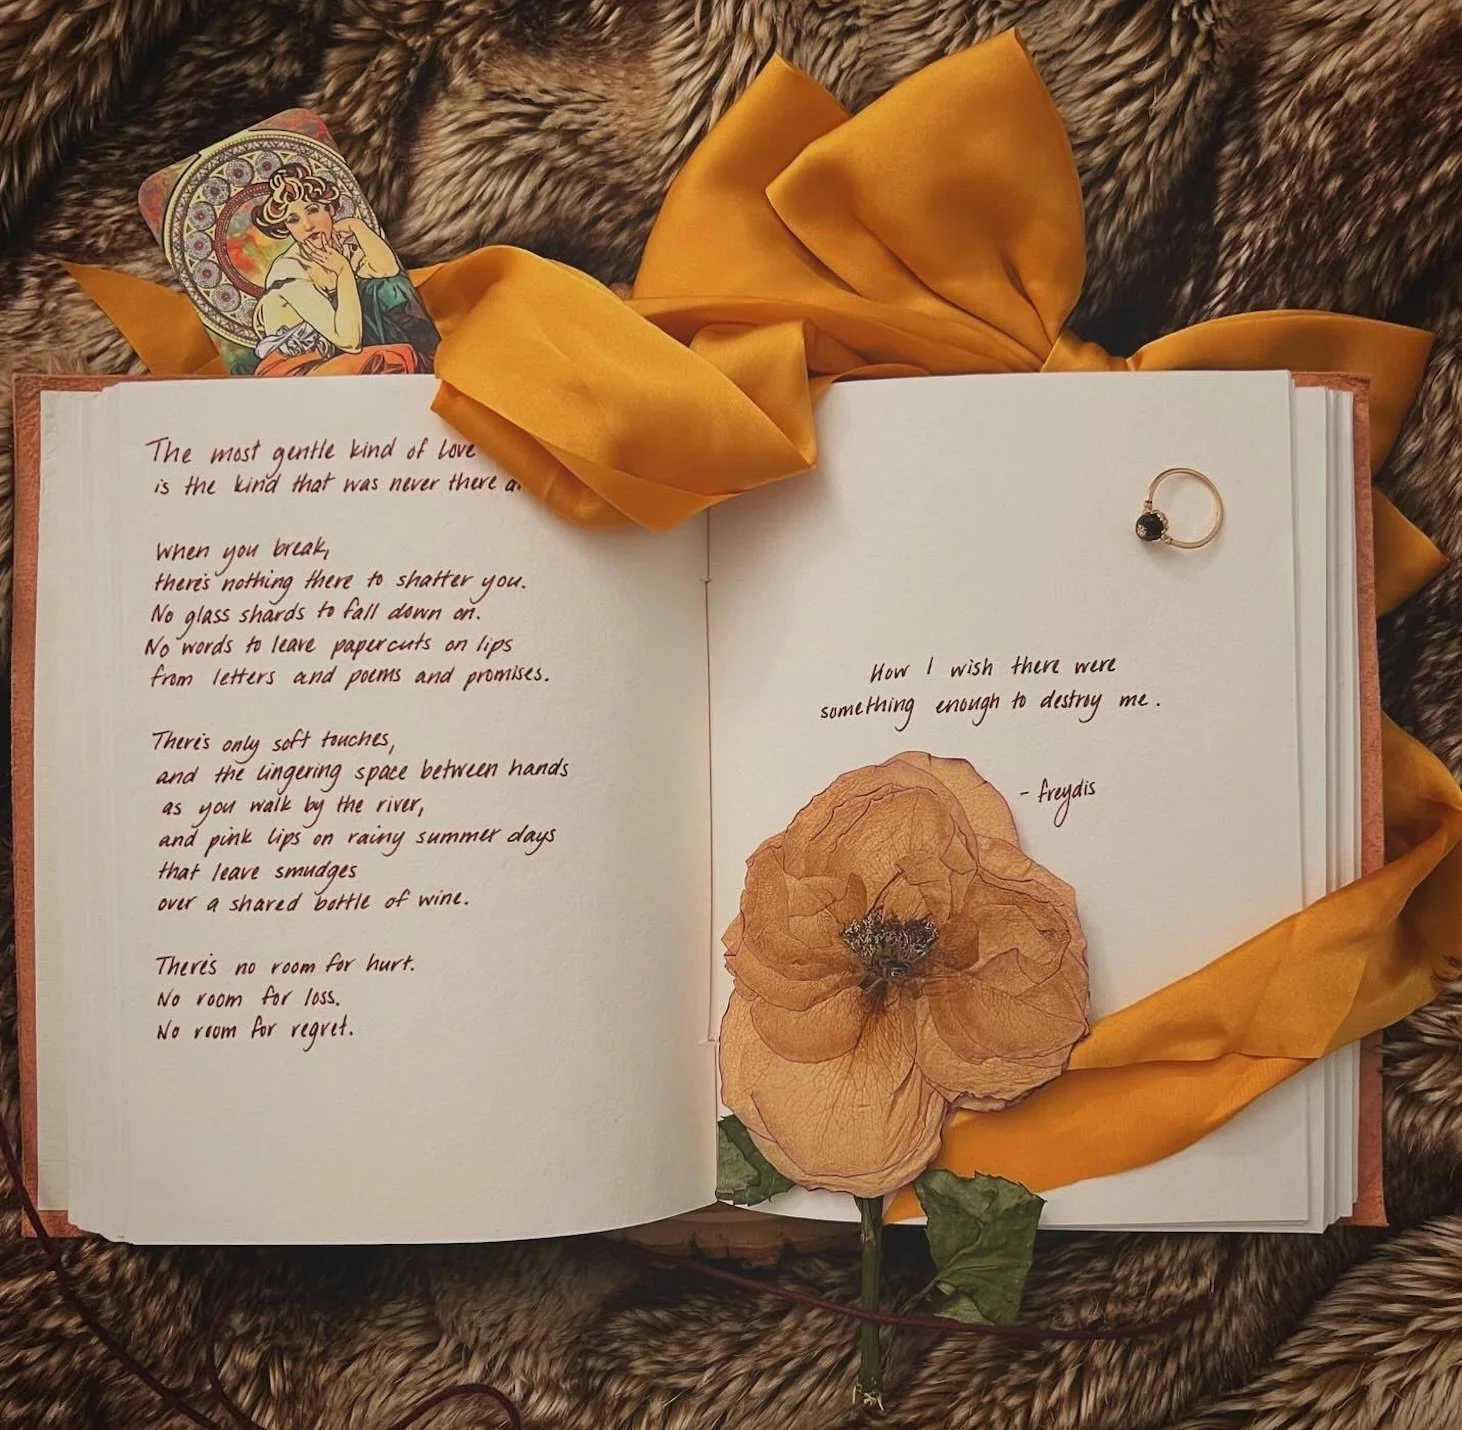 The most gentle kind of love
is the kind that was never there
When you break,
there's nothing there to shatter you.
No glass shards to fall down on.
No words to leave papercuts on lips
from letters and poems and promises.
There's only soft touches,
and the lingering space between hands
as you walk by the river,
and pink lips on rainy summer days
that leave smudges
over a shared bottle of wine.
There's no room for hurt.
No room for loss.
No room for regret.
How I wish there were
something enough to destroy me.
- freydis